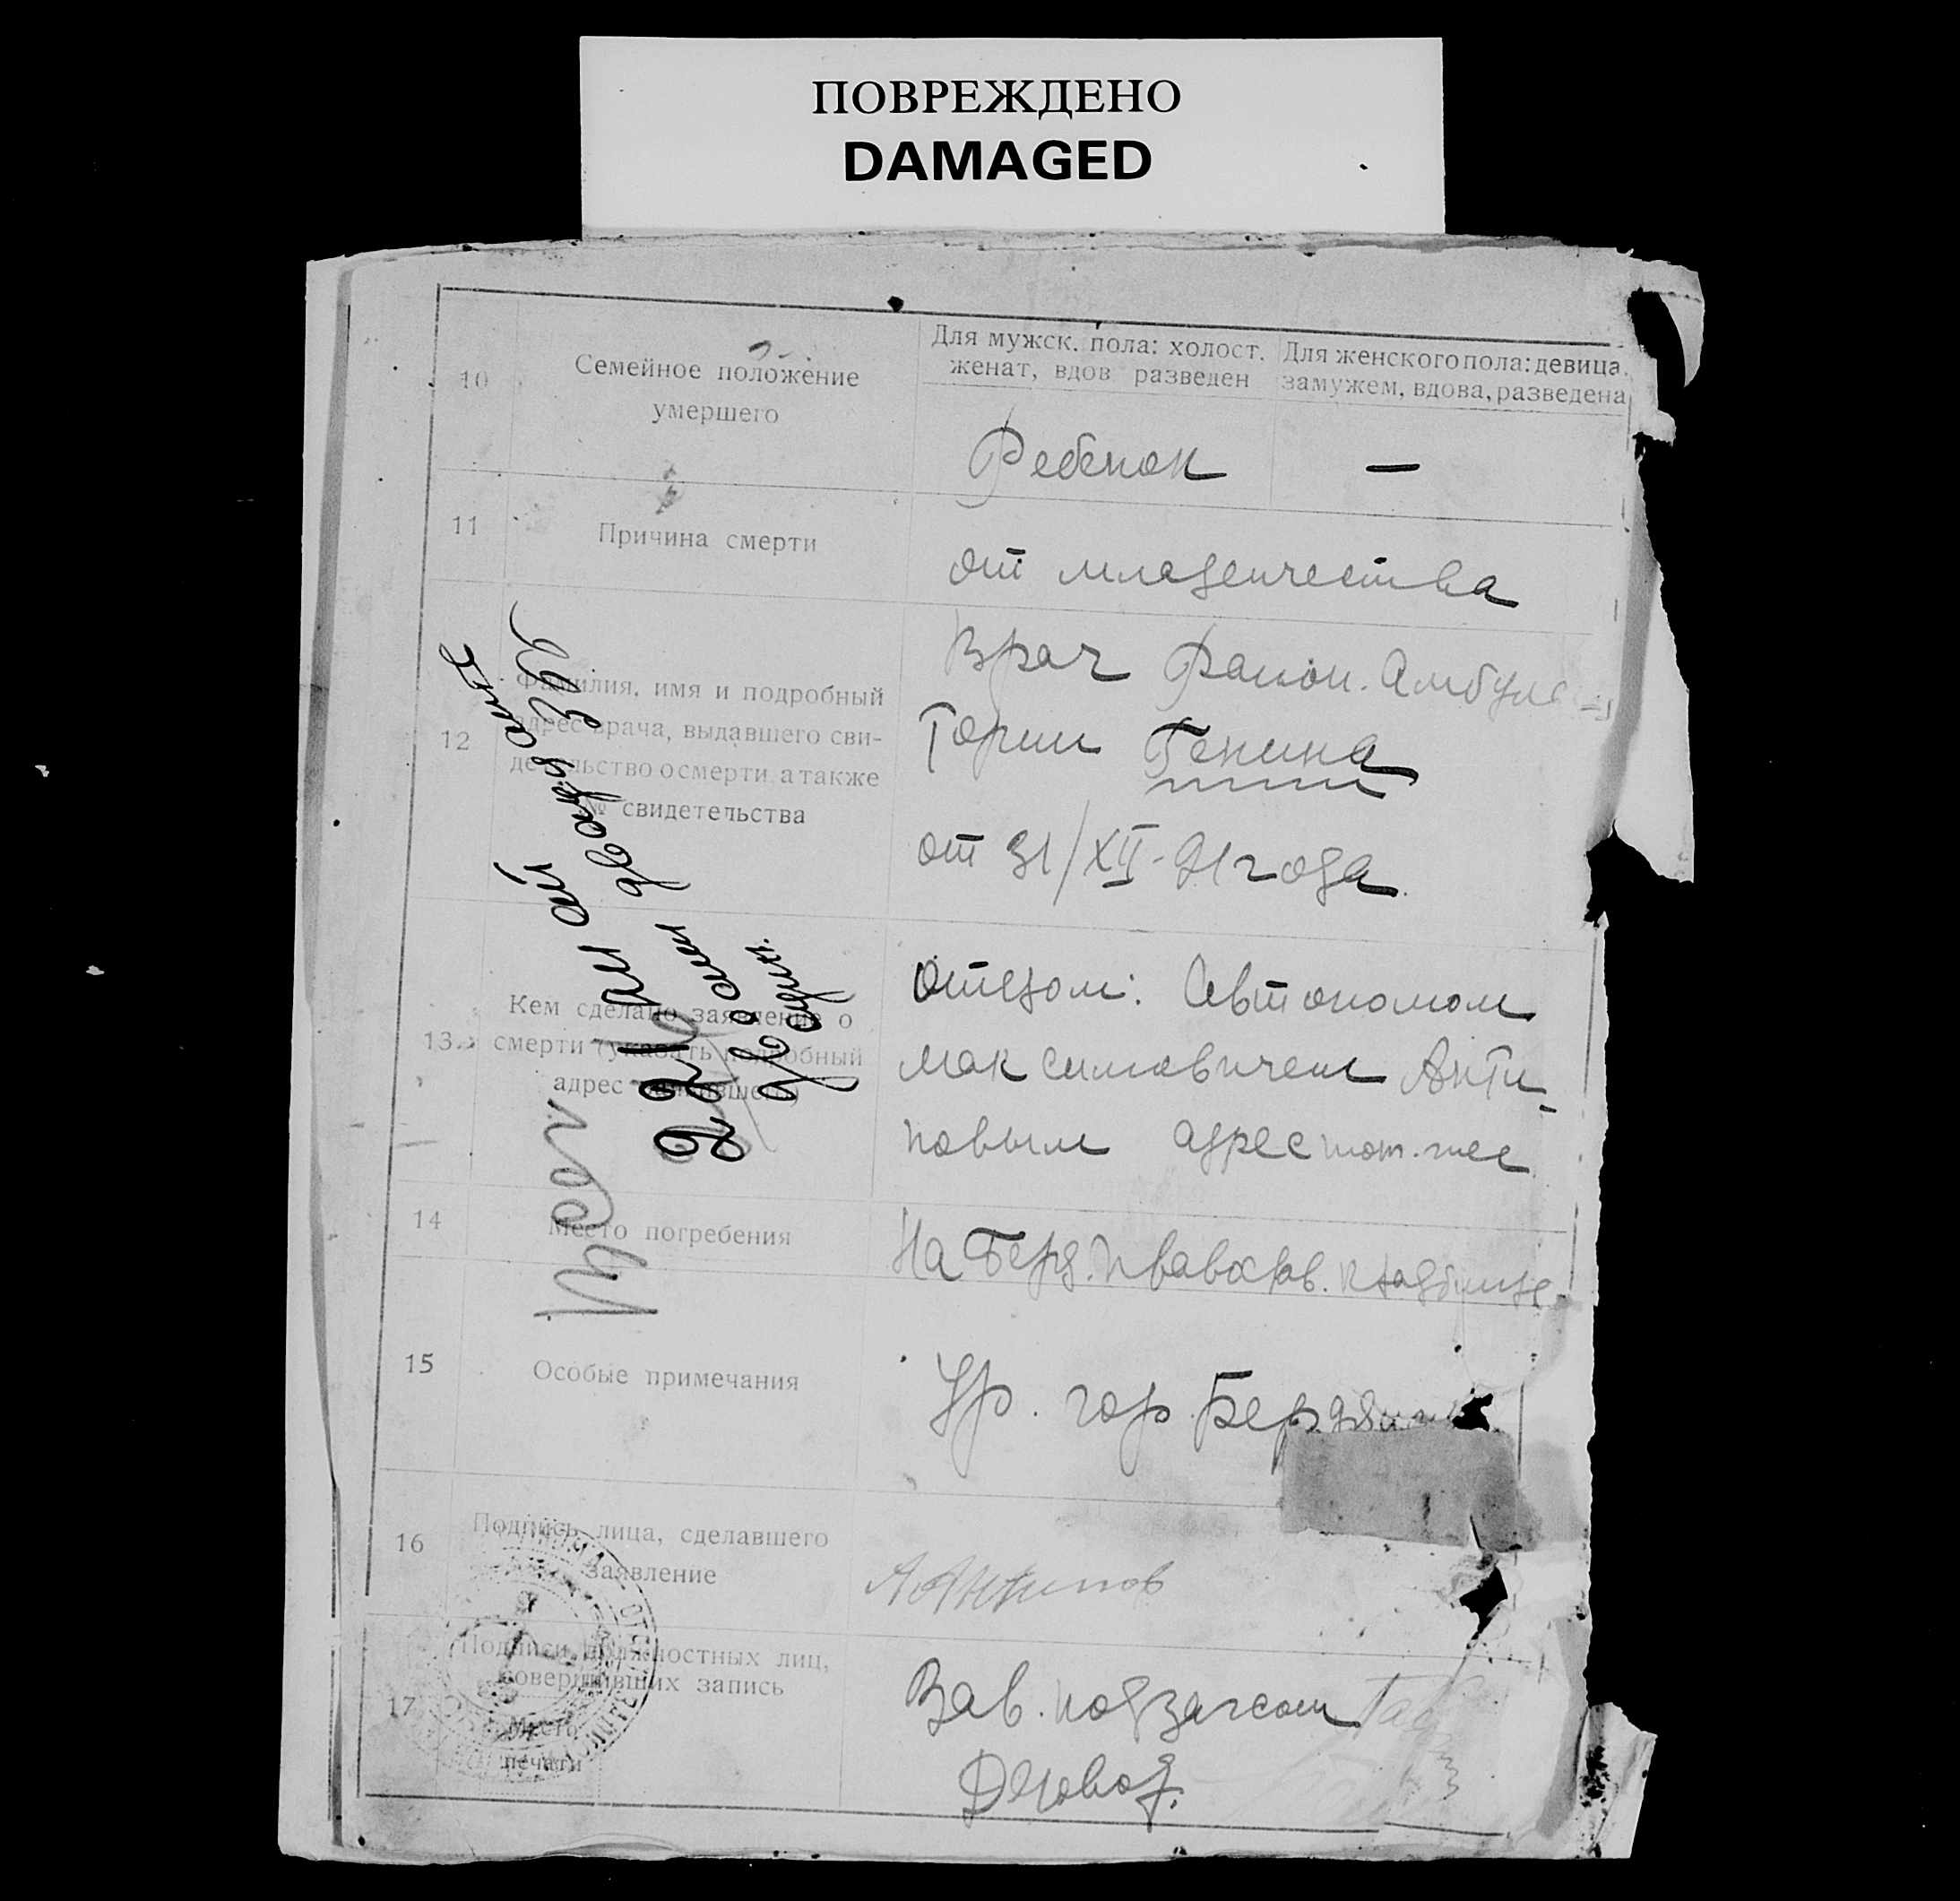 ПОВРЕЖДЕНО
DAMAGED
10
Семейное положение
умершего
Для мужск. пола: холост.
женат, вдов разведен
Для женского пола: девица.
замужем, вдова, разведена
Ребенок
—
11
Причина смерти
от младенчества
12
Фамилия, имя и подробный
адрес врача, выдавшего сви-
детельство о смерти, а также
№ свидетельства
Врач Район. Амбула-
тории Генина
от 31/XII-21 года.
13
Кем сделано заявление о
смерти (указать подробный
адрес заявившего)
Отецом: Автономом
Максимовичем Анти-
повым адрес тот-же
14
Место погребения
На Берд. Православ. кладбище
15
Особые примечания
Гр. гор. Бердянска
16
Подпись лица, сделавшего
заявление
А Антипов
17
Подписи должностных лиц,
совершивших запись
Место
печати
Зав. подзагсом
Деловод.
двадцать
двадцать
один.